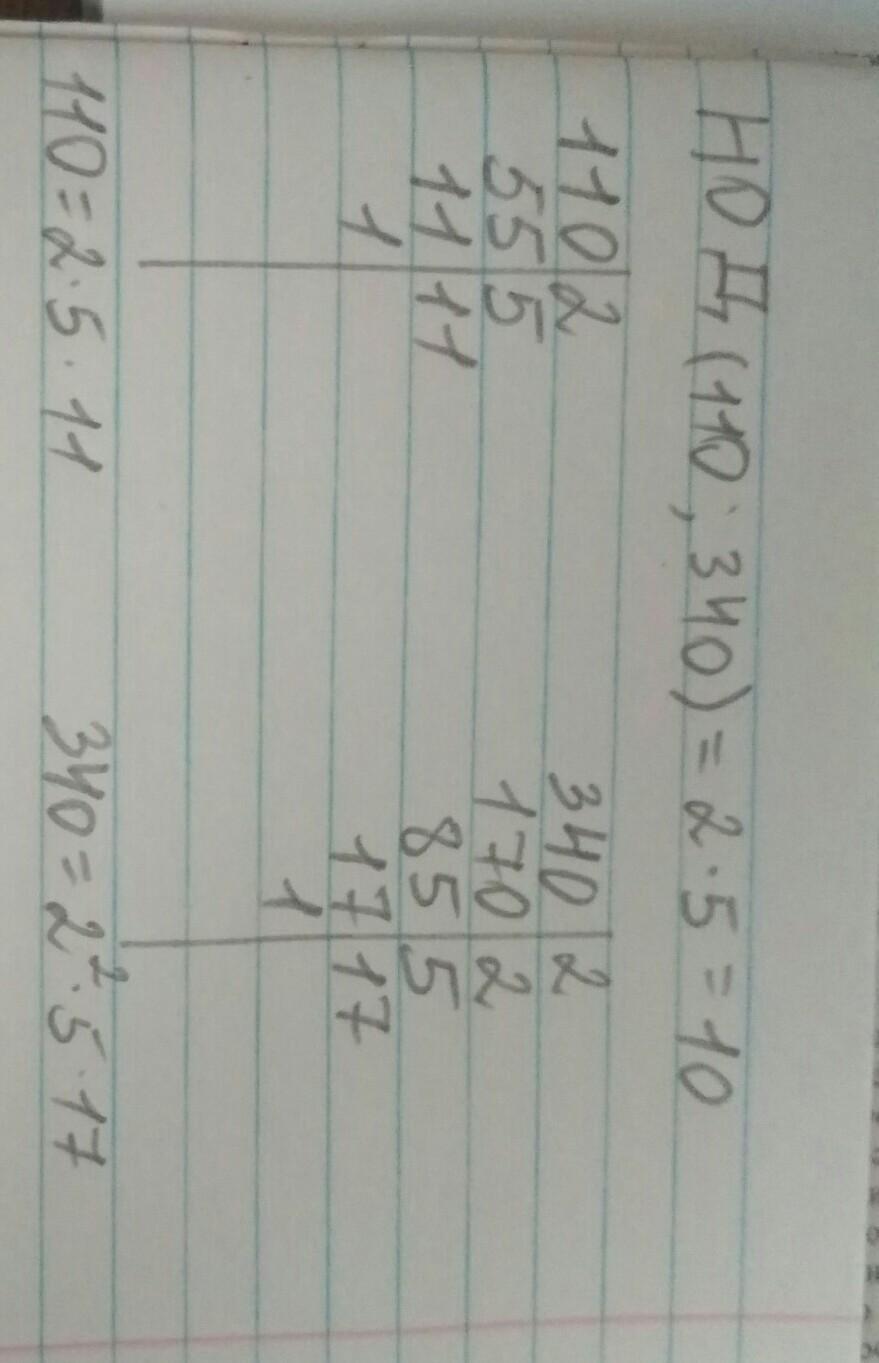 НОД (110; 340) = 2·5 = 10
110 2 340 2
55 5 170 2
11 11 85 5
1 17 17
1
110 = 2·5·11 340 = 2²·5·17